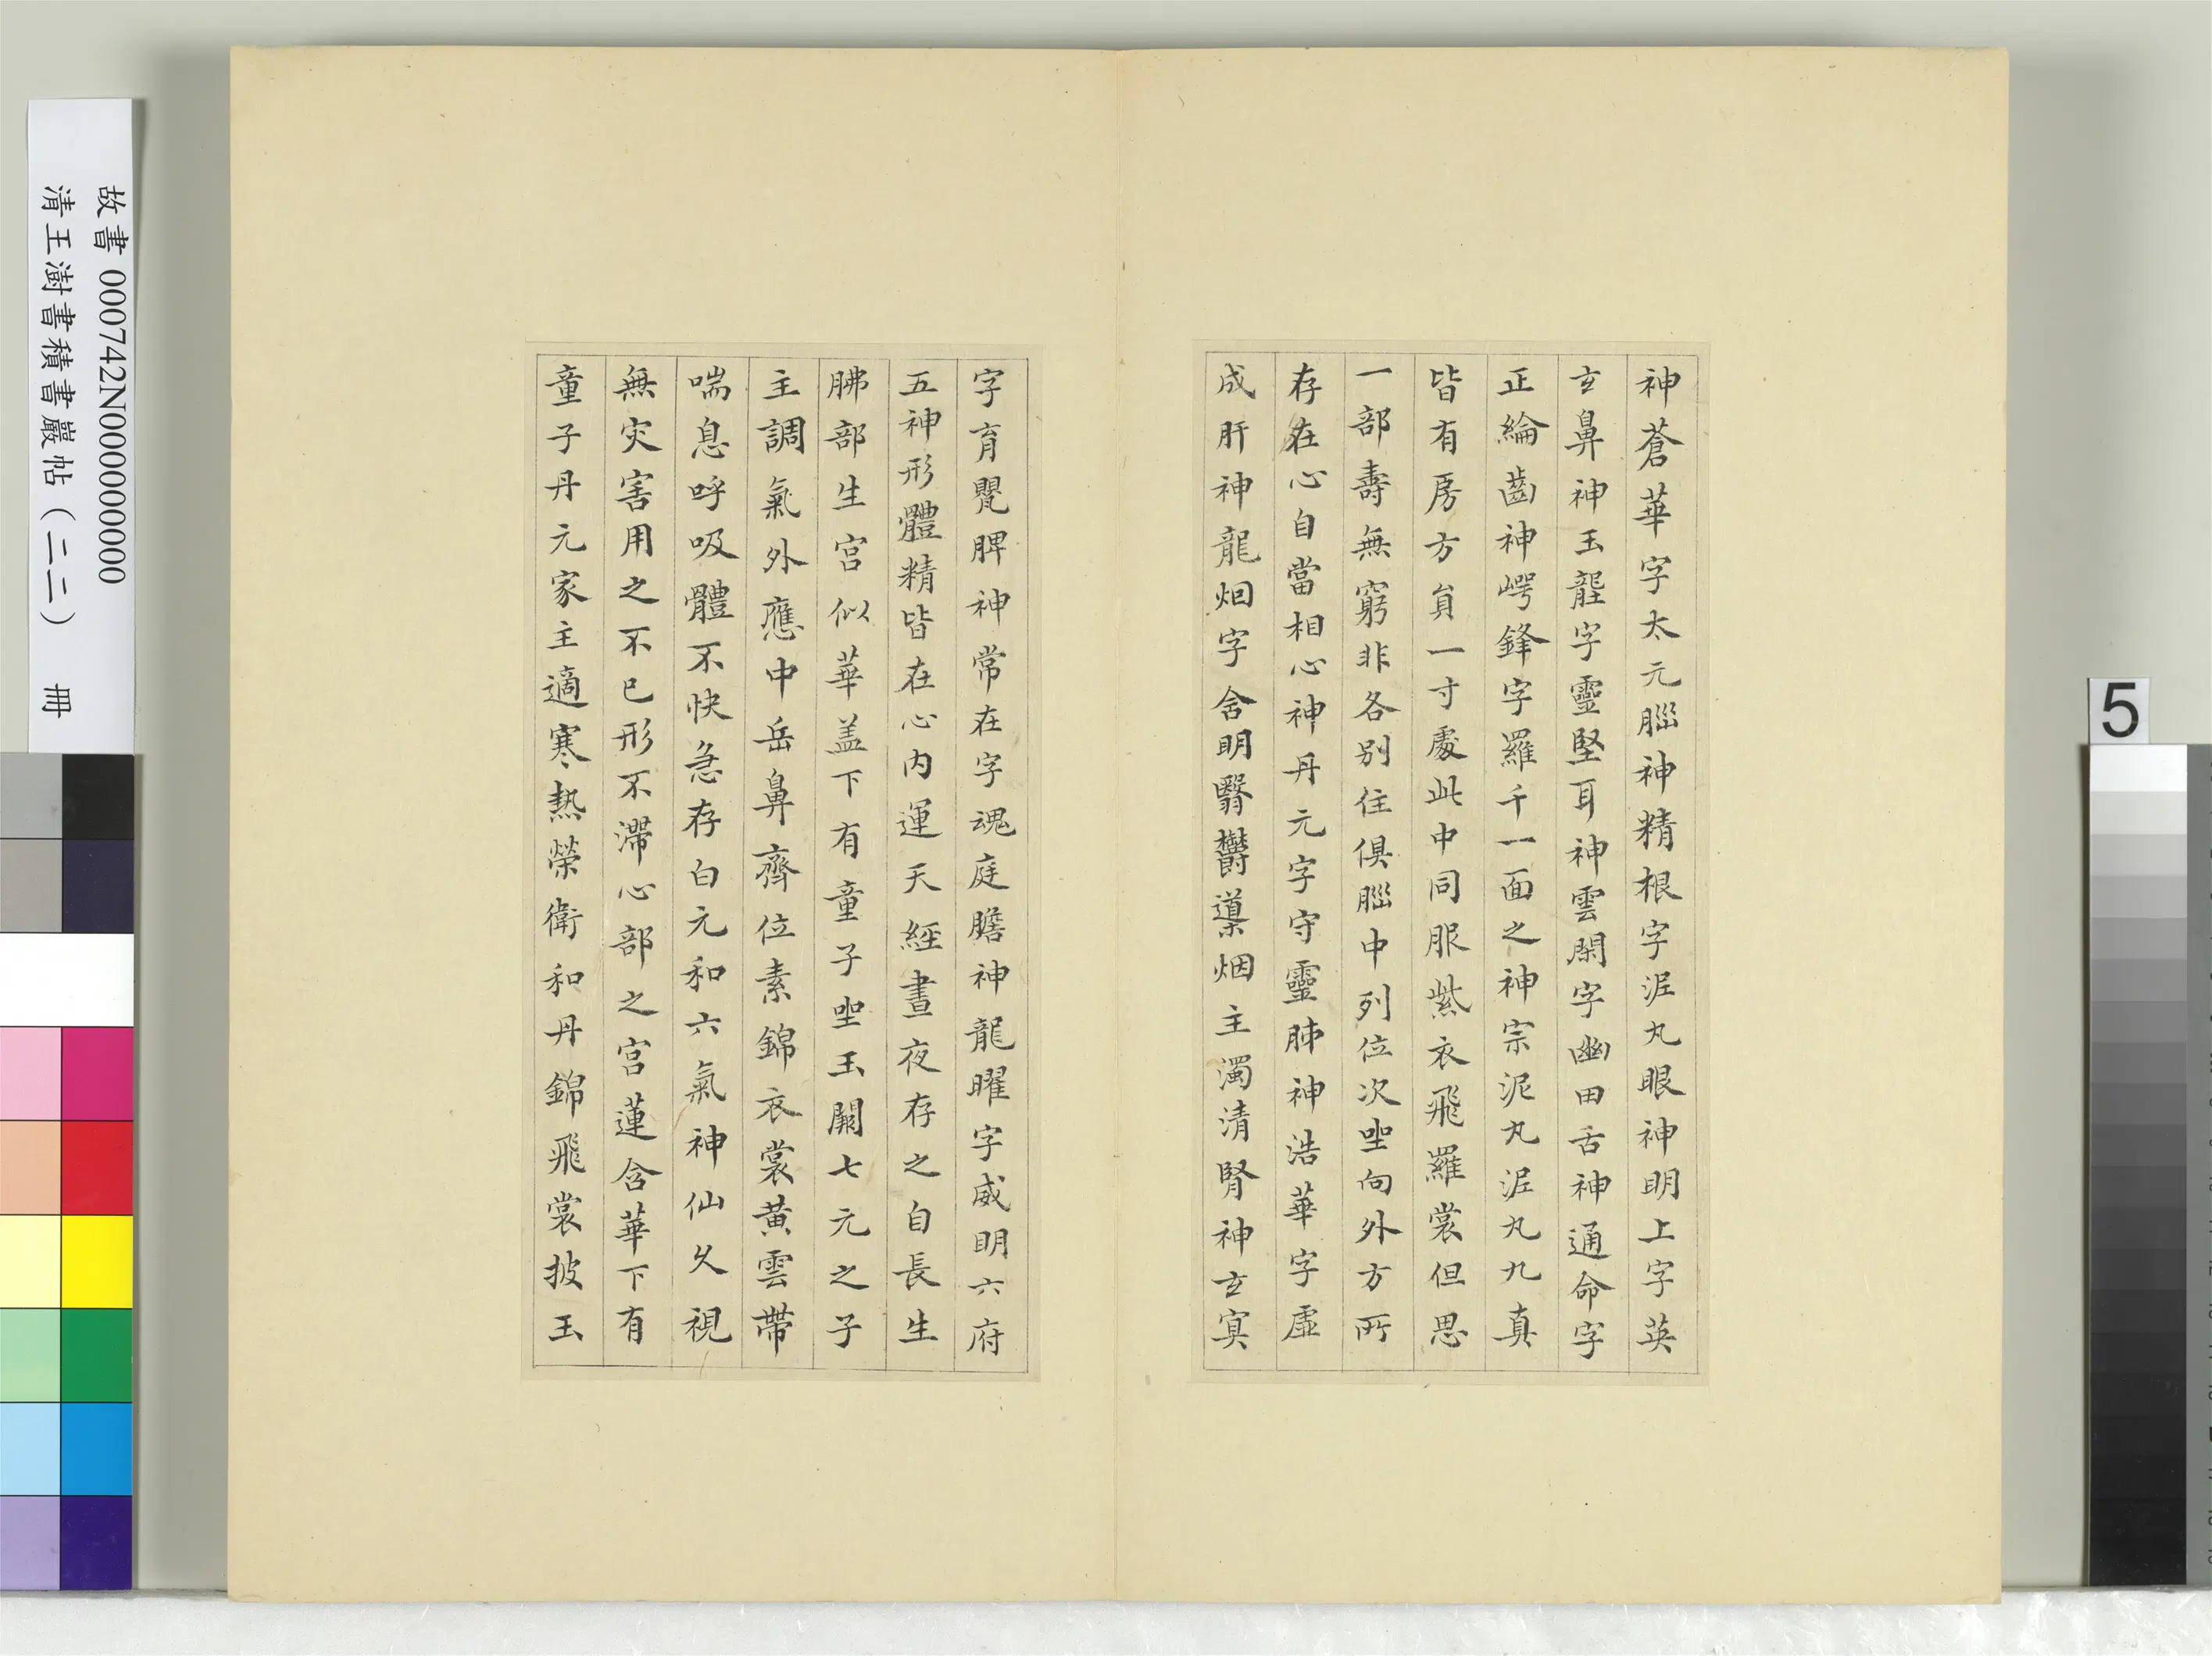 神蒼華字太元腦神精根字泥丸眼神明上字英
玄鼻神玉壟字靈堅耳神雲閑字幽田舌神通命字
正綸齒神崿鋒字羅千一面之神宗泥丸泥丸九真
皆有房方負一寸處此中同服紫衣飛羅裳但思
一部壽無窮非各別住俱腦中列位次坐向外方所
存在心自當相心神丹元字守靈肺神浩華字虛
成肝神龍烟字含明翳欝導烟主濁清腎神玄冥
字育嬰脾神常在字魂庭膽神龍曜字威明六府
五神形體精皆在心內運天經晝夜存之自長生
肺部生宮似華盖下有童子坐玉闕七元之子
主調氣外應中岳鼻齊位素錦衣裳黃雲帶
喘息呼吸體不快急存白元和六氣神仙久視
無灾害用之不已形不滯心部之宮蓮含華下有
童子丹元家主適寒熱榮衛和丹錦飛裳披玉
故書 000742N000000000
清王澍書積書巖帖（二二） 冊
5